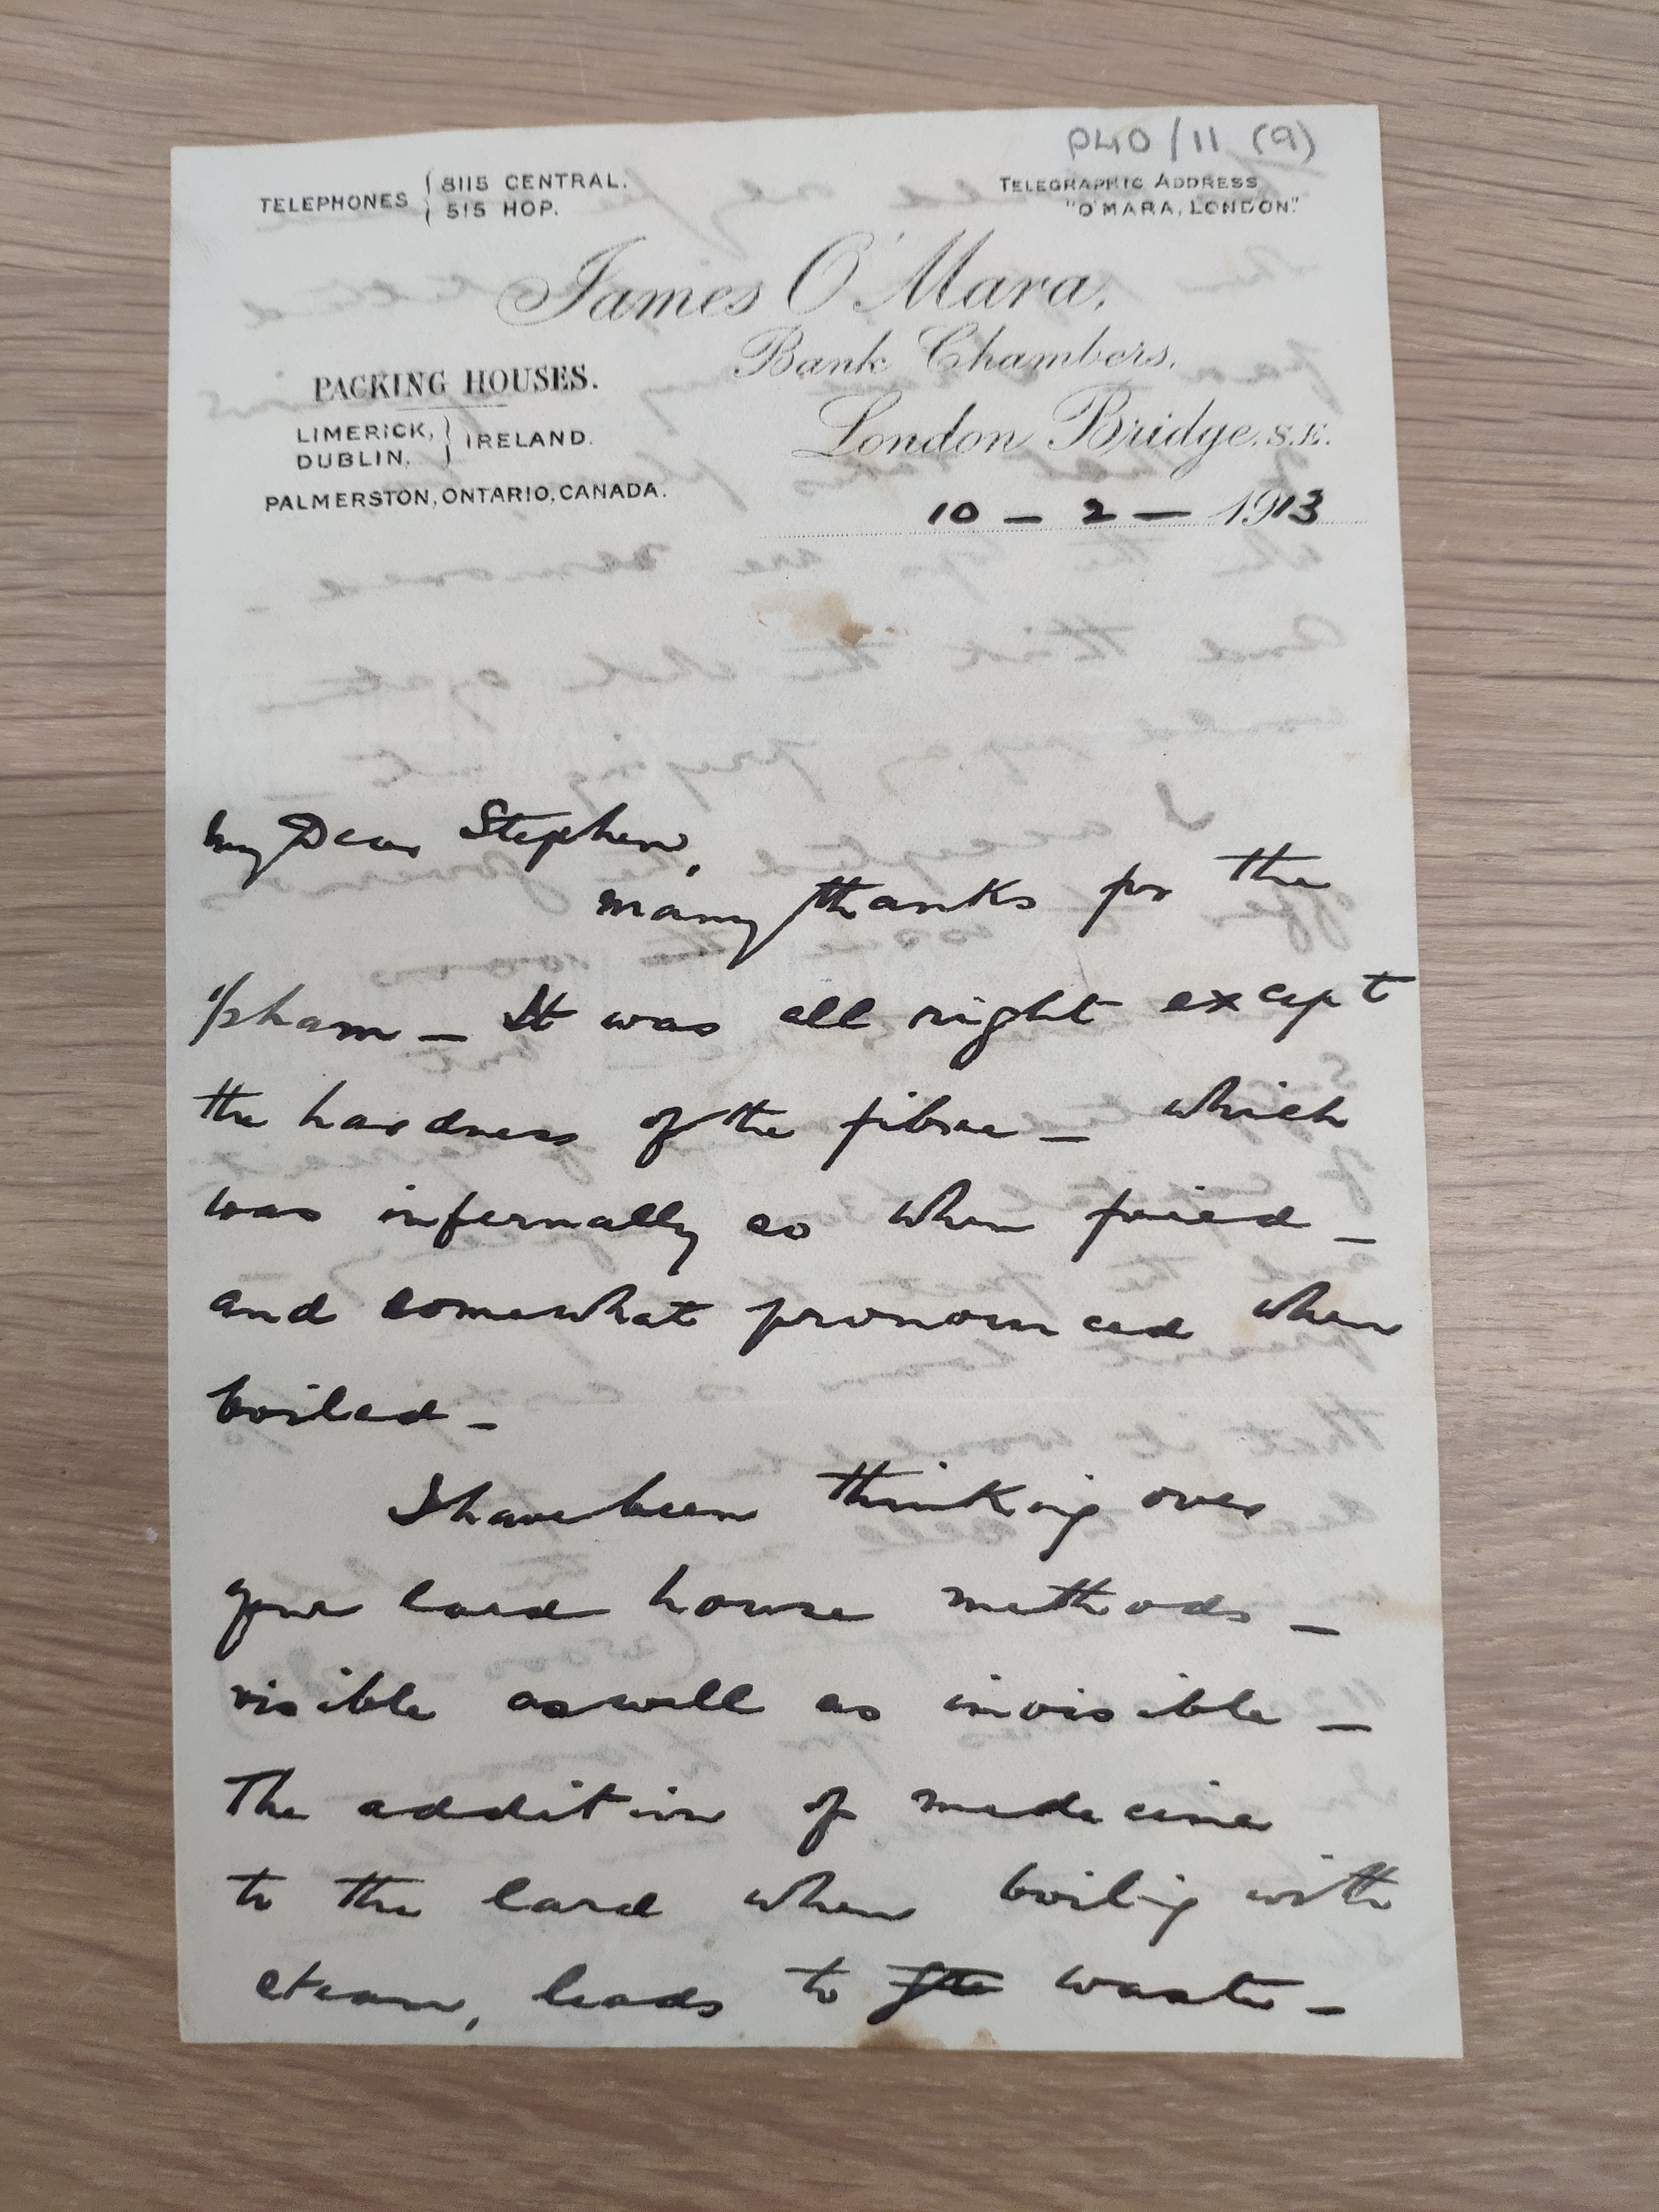 P40/11 (9)
TELEPHONES { 8115 CENTRAL.
515 HOP.
TELEGRAPHIC ADDRESS
"O'MARA, LONDON."
James O'Mara,
Bank Chambers,
London Bridge, S.E.
PACKING HOUSES.
LIMERICK, } IRELAND.
DUBLIN,
PALMERSTON, ONTARIO, CANADA.
10 – 2 – 1913
My Dear Stephen,
many thanks for the
ham – It was all right except
the hardness of the fibre – which
was infernally so when fried –
and somewhat pronounced when
boiled –
I have been thinking over
your lard house methods –
visible as well as invisible –
The addition of medecine
to the lard when boiling with
steam, leads to waste –